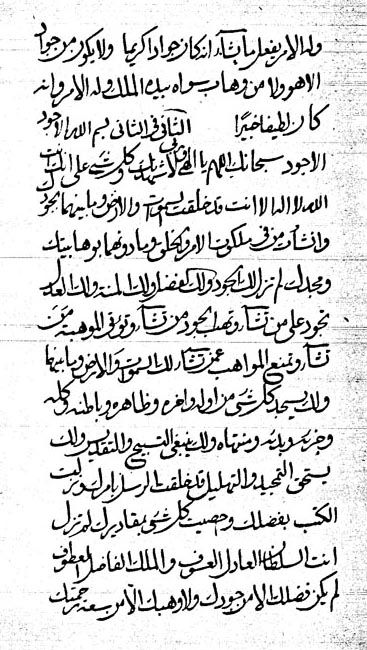 وله الامر يفعل ما يشآء انه كان جوادا كريما ولا يكون من جواد
الا هو ولا من وهاب سواه بيده الملك وله الامر وانه
كان لطيفا خبيرا الثانى فى الثانى بسم الله الاجود
الاجود سبحانك اللهم يا الهى لاشهدنك وكلشئ على انك انت
الله لا اله الا انت قد خلقت السموات والارض وما بينهما بجودك
وانشات من فى ملكوت الامر والخلق وما دونهما بوهابيتك
ومجدك لم تزل لك الجود ولك الفضل ولك المنة ولك العدل
تجود على من تشآء وتهب الجود من تشآء وتؤتى الموهبة من
تشآء وتمنع المواهب عمن تشآء لك السموات والارض وما بينهما
ولك يسجد كلشئ من اوله واخره وظاهره وباطنه وكله
وجزئه وبدئه ومنتهاه ولك ينبغى التسبيح والتقديس ولك
يستحق التمجيد والتهليل قد خلقت الرسل بامرك ونزلت
الكتب بفضلك واحصيت كلشئ بمقاديرك لم تزل
انت السلطان العادل العسوف والملك الفاضل العطوف
لم يكن فضلك الا من جودك ولا وهبك الا من سعة رحمتك